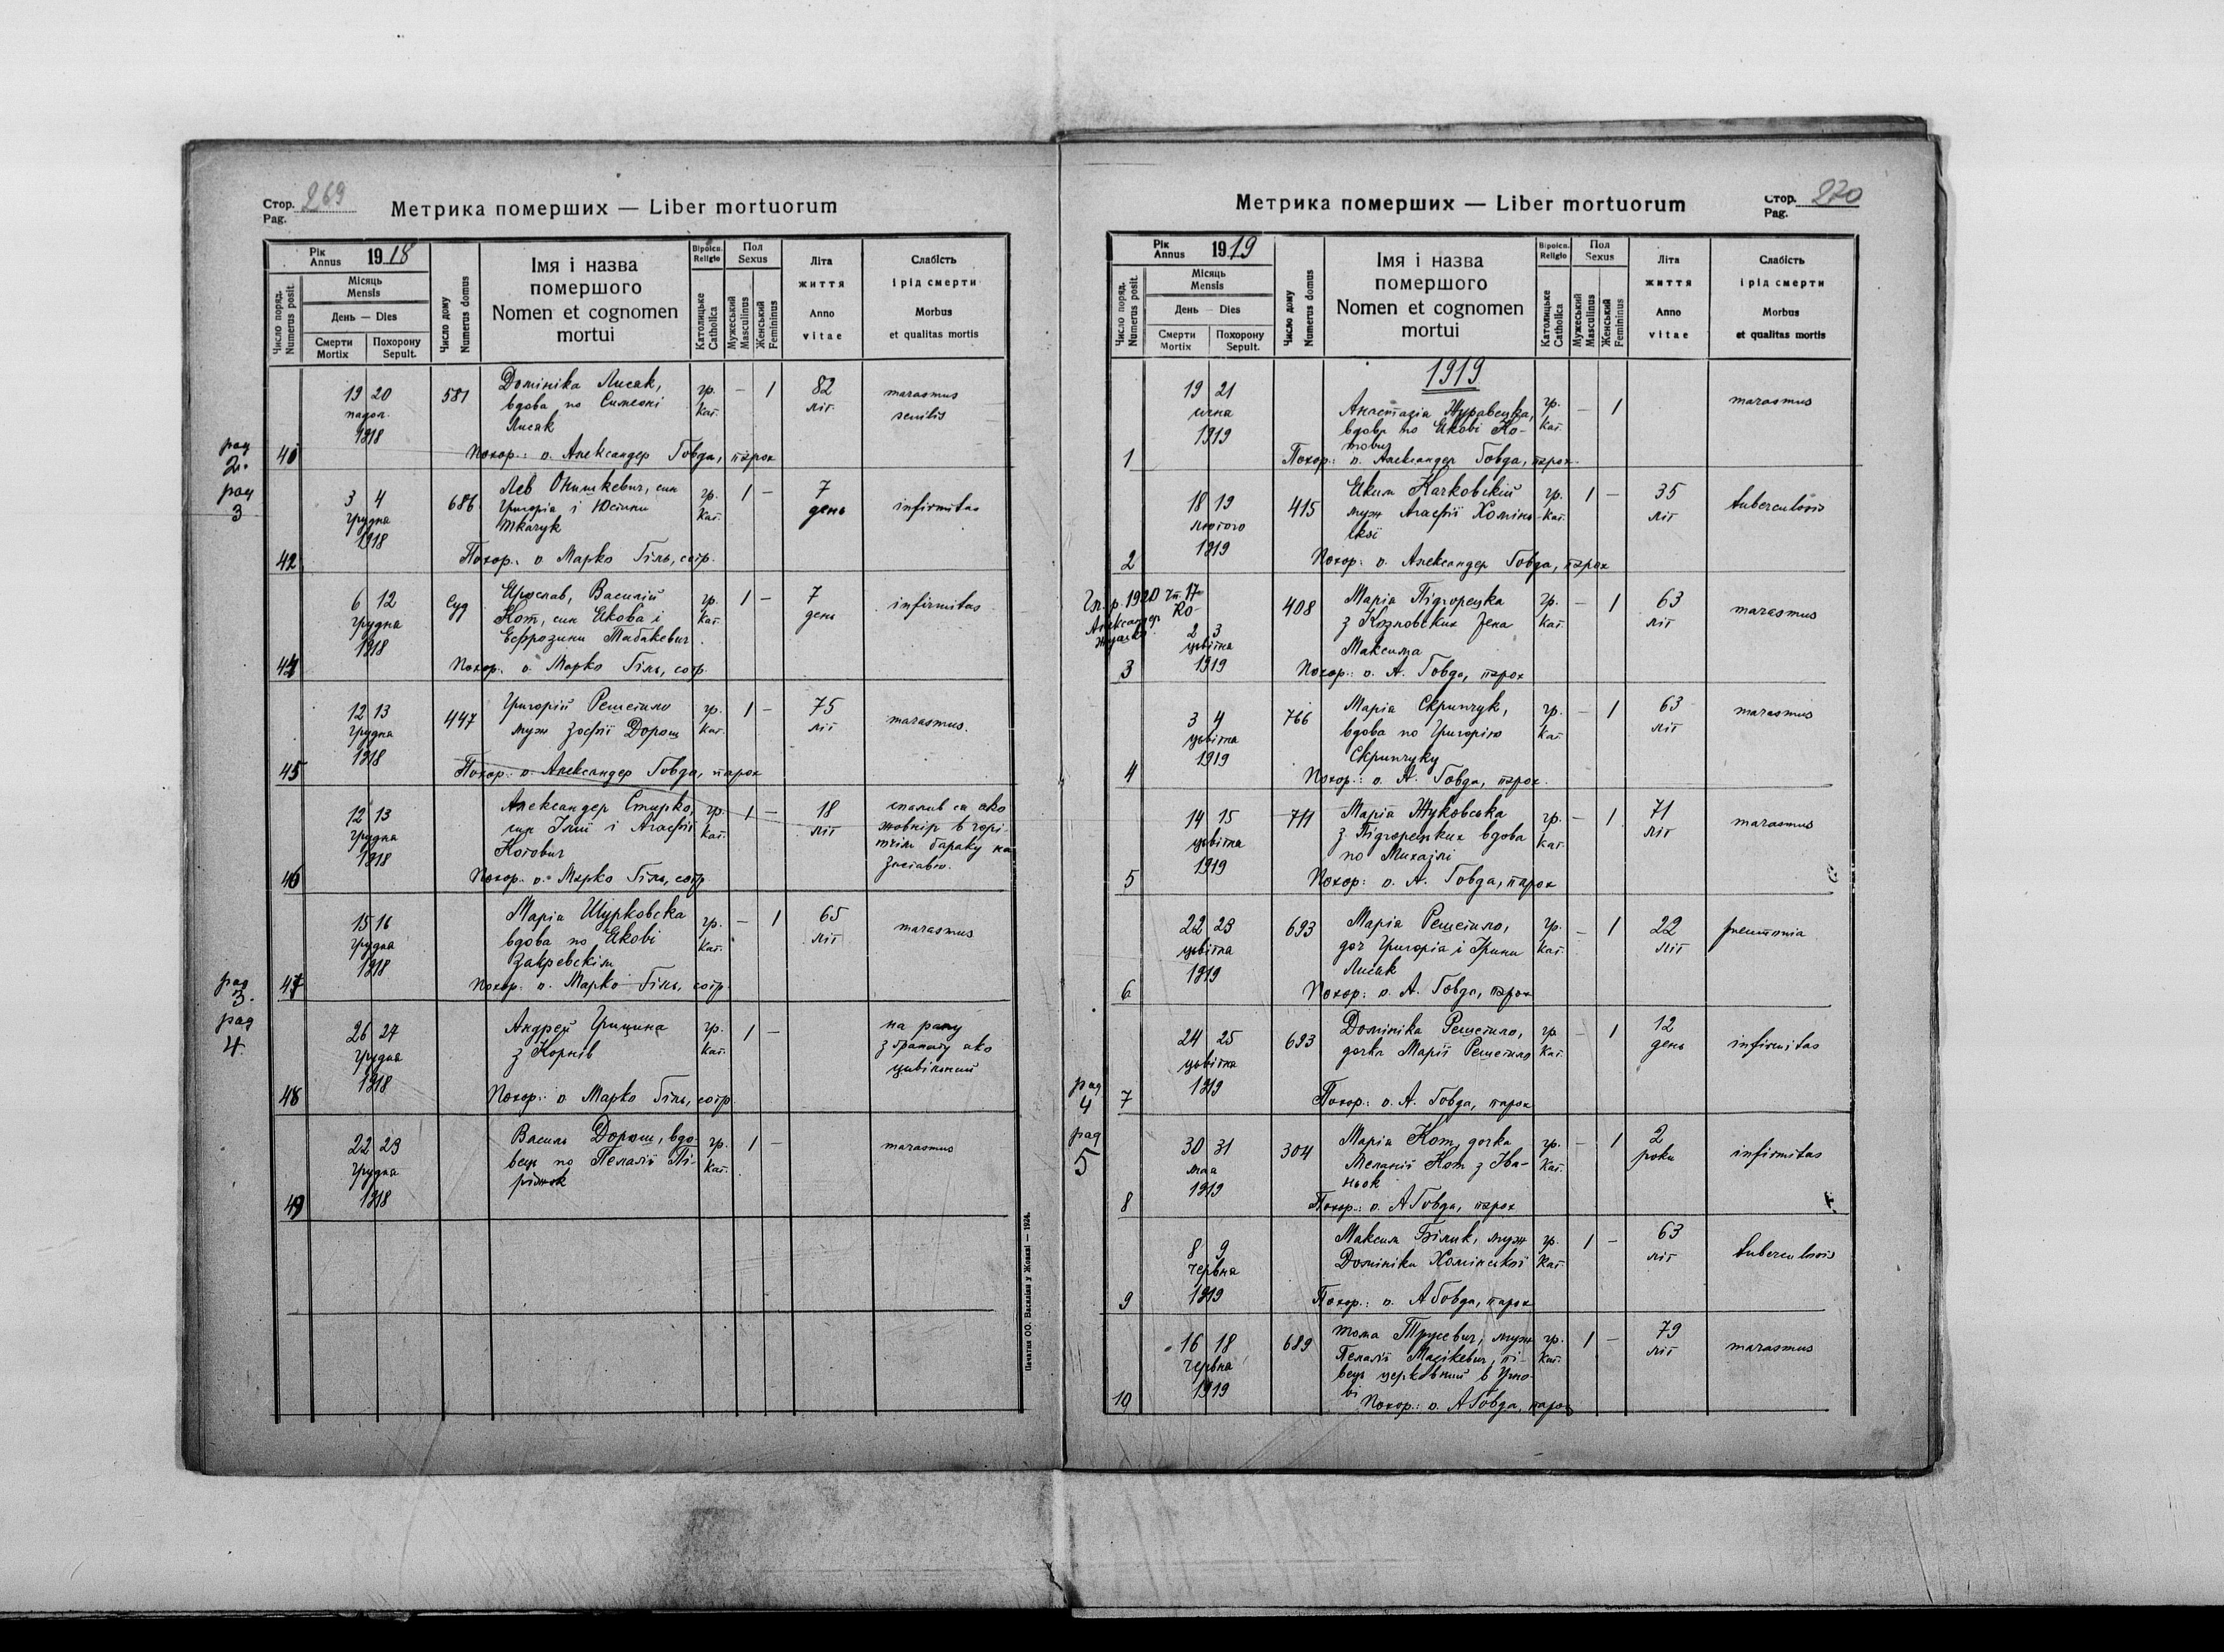 Стор. 269
Pag.
Метрика померших — Liber mortuorum
Рік
Annus
1918
Місяць
Mensis
День — Dies
Число поряд.
Numerus posit.
Смерти
Mortix
Похорону
Sepult.
Число дому
Numerus domus
Імя і назва
помершого
Nomen et cognomen
mortui
Віроісп.
Religio
Католицьке
Catholica
Пол
Sexus
Мужеський
Masculinus
Женський
Femininus
Літа
життя
Anno
vitae
Слабість
і рід смерти
Morbus
et qualitas mortis
19 20 581 Домініка Лисак, гр. — 1 82 marasmus
вдова по Симеоні кат. літ senilis
1918 Лисак
Похор.: о. Александер Говда, парох
3 4 686 Лев Онишкевич, син гр. 1 — 7 infirmitas
грудня Григорія і Юстини кат. день
1918 Ткачук
42 Похор.: о. Марко Гіль, сотр.
6 12 Суд Ярослав, Василій гр. 1 — 7 infirmitas
грудня Кот, син Якова і кат. день
1918 Евфрозини Табакевич
44 Похор.: о. Марко Гіль, сотр.
12 13 447 Григорій Решетило гр. 1 — 75 marasmus.
грудня муж Зофії Дорош кат. літ
1918
45 Похор.: о. Александер Говда, парох
12 13 Александер Стирко, гр. 1 — 18 спалив ся яко
грудня син Ілії і Агафії кат. літ жовнір в горі-
1918 Котович бараку на
46 Похор. о. Марко Гіль, сотр
15 16 Марія Шурковска гр. — 1 65 marasmus
грудня вдова по Якові кат. літ
1918 Закревскім
47 Похор. о. Марко Гіль, сотр.
26 27 Андрей Грицина гр. 1 — на рану
грудня з Корнів кат. з гранату яко
1918 цивільний
48 Похор.: о Марко Гіль, сотр
22 23 Василь Дорош, вдо- гр. 1 — marasmus
грудня вець по Пелагії Пі- кат.
1918 ріжок
49
Печатня ОО. Василіян у Жовкві — 1924.
Стор. 270
Pag.
Метрика померших — Liber mortuorum
Рік
Annus
1919
Місяць
Mensis
День — Dies
Число поряд.
Numerus posit.
Смерти
Mortix
Похорону
Sepult.
Число дому
Numerus domus
Імя і назва
помершого
Nomen et cognomen
mortui
Віроісп.
Religio
Католицьке
Catholica
Пол
Sexus
Мужеський
Masculinus
Женський
Femininus
Літа
життя
Anno
vitae
Слабість
і рід смерти
Morbus
et qualitas mortis
1919
19 21 Анастазія Журавецка, гр. — 1 marasmus
січня вдова по Якові Ко- кат.
1919 тович
1 Похор.: о. Александер Говда, парох
18 19 415 Яким Качковскій гр. 1 — 35 tuberculosis
лютого муж Агафії Хомінь- кат. літ
1919 скої
2 Похор: о. Александер Говда, парох
2 3 408 Марія Підгорецка гр. — 1 63 marasmus
цвітня з Козловских жена кат. літ
1919 Максима
3 Похор.: о. А. Говда, парох
3 4 766 Марія Скрипчук, гр. — 1 63 marasmus
цвітня вдова по Григорію кат. літ
1919 Скрипчуку
4 Похор.: о. А. Говда, парох.
14 15 711 Марія Жуковска гр. — 1 71 marasmus
цвітня з Підгорецких вдова кат. літ
1919 по Михайлі
5 Похор: о. А. Говда, парох
22 23 693 Марія Решетило, гр. — 1 22 pneumonia
цвітня доч Григорія і Ірини кат. літ
1919 Лисак
6 Похор: о. А. Говда, парох
24 25 693 Домініка Решетило, гр — 1 12 infirmitas
цвітня дочка Марії Решетило кат. день
1919
7 Похор: о. А. Говда, парох
30 31 304 Марія Кот, дочка гр. — 1 2 infirmitas
мая Меланії Кот з Іва- кат. роки
1919 ньок
8 Похор.: о. А Говда, парох
8 9 Максим Білик, муж гр. 1 — 63 tuberculosis
червня Домініки Хоміньскої кат. літ
1919
9 Похор.: о. А Говда, парох
16 18 689 Тома Трусевич, муж гр. 1 — 79 marasmus
червня Пелагії Мацікевич, пі- кат. літ
1919 вець церковний в
10 Похор.: о. А Говда, парох